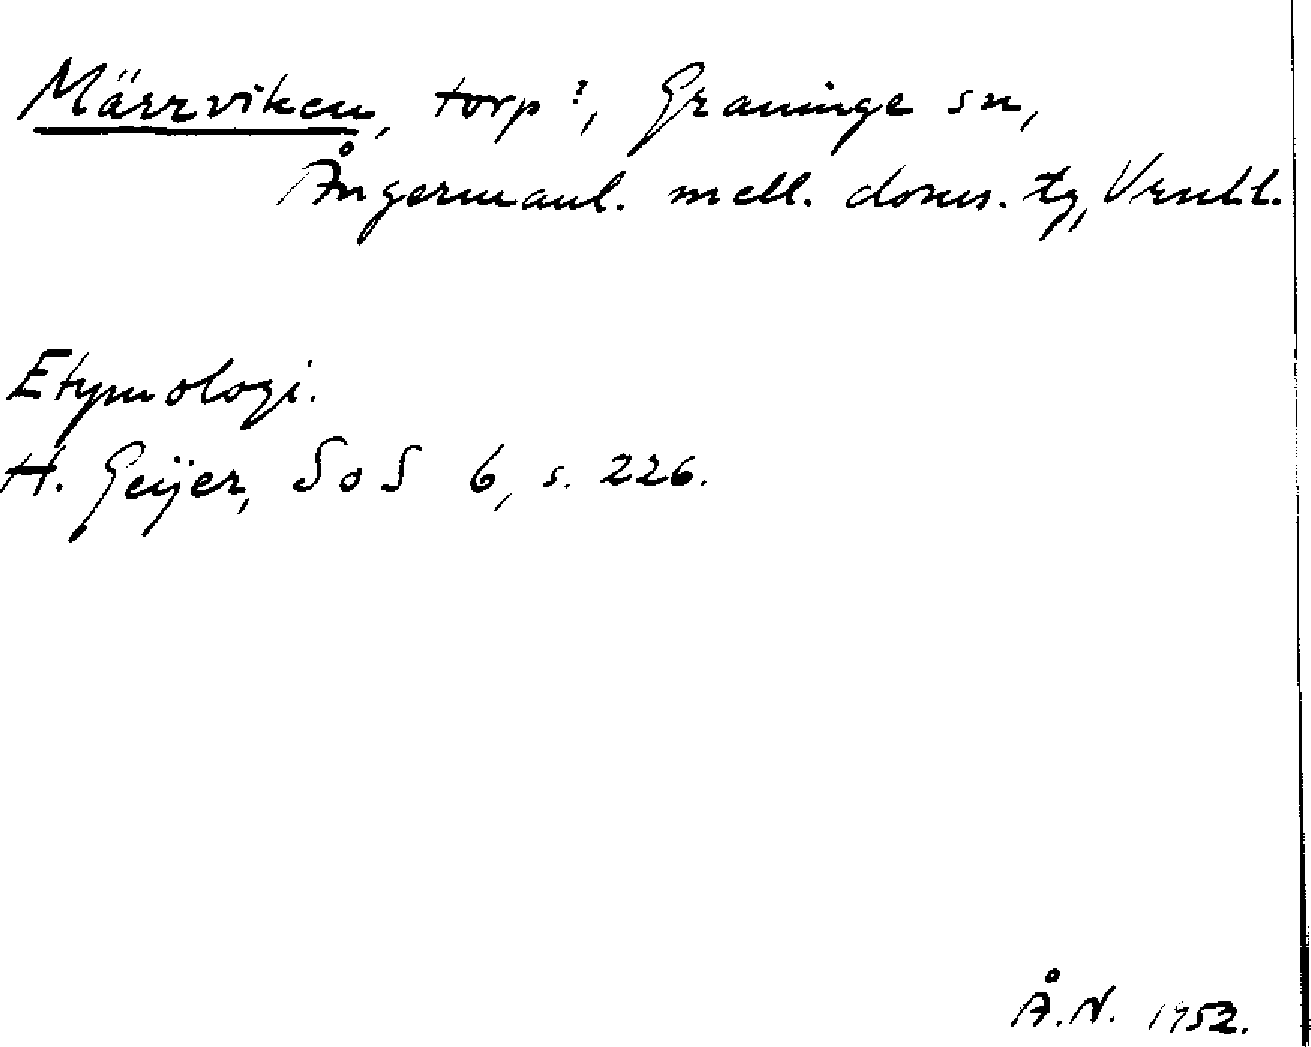 Märrviken, torp?, Graninge sn,
Ångermanl. mell. doms. tg, Vrnl.l.
Etymologi.
H. Geijer, SoS 6, s. 226.
Å.N. 1952.